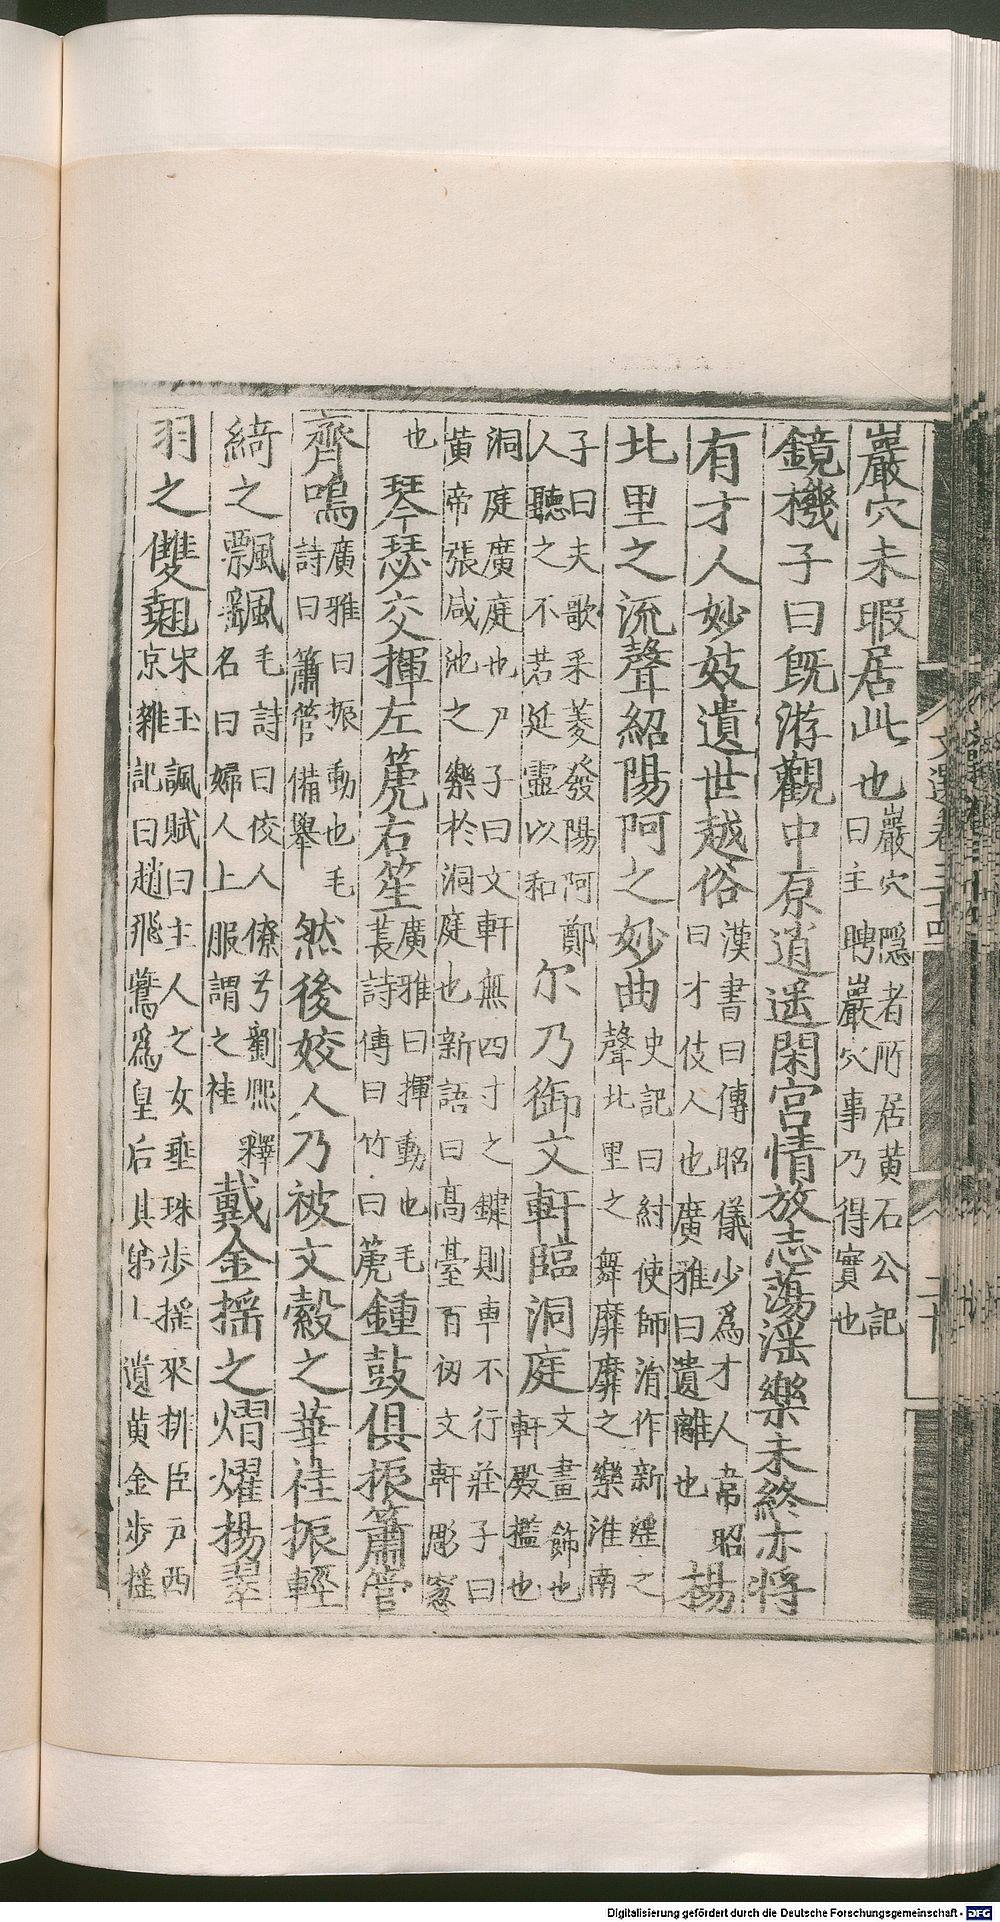 巖穴未暇居此也巖穴隱者所居黄石公記
曰主聘巖穴事乃得實也
鏡機子曰既游觀中原逍遥閑宫情放志蕩淫樂未終亦將
有才人妙妓遺世越俗漢書曰傳昭儀少爲才人韋昭
曰才伎人也廣雅曰遺離也楊
北里之流聲紹陽阿之妙曲史記曰紂使師涓作新淫之
聲北里之舞靡靡之樂淮南
子曰夫歌采菱發陽阿鄭
人聽之不若延靈以和尔乃御文軒臨洞庭文畫飾也
軒殿檻也
洞庭廣庭也尸子曰文軒無四寸之鍵則車不行莊子曰
黄帝張咸池之樂於洞庭也新語曰高臺百仞文軒彫窓
也琴瑟交揮左箎右笙廣雅曰揮動也毛
萇詩傳曰竹曰箎鍾鼓俱振簫管
齊鳴廣雅曰振動也毛
詩曰簫管備舉然後姣人乃被文縠之華袿振輕
綺之飄颻毛詩曰佼人僚兮劉熙釋
名曰婦人上服謂之袿戴金摇之熠燿揚翠
羽之雙翹宋玉諷賦曰主人之女垂珠步摇來排臣户西
京雜記曰趙飛鷰爲皇后其弟上遺黄金步摇
文選卷三十四
二十
Digitalisierung gefördert durch die Deutsche Forschungsgemeinschaft - DFG